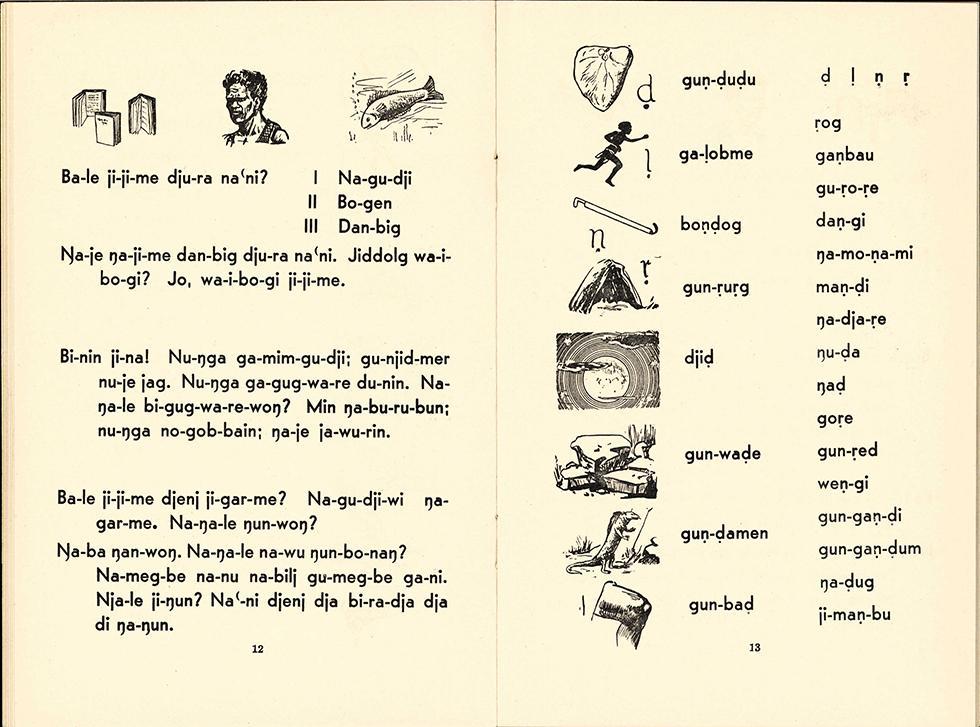 Ba-le ji-ji-me dju-ra naʿni? I Na-gu-dji
II Bo-gen
III Dan-big
Ŋa-je ŋa-ji-me dan-big dju-ra naʿni. Jiddolg wa-i-
bo-gi? Jo, wa-i-bo-gi ji-ji-me.
Bi-nin ji-na! Nu-ŋga ga-mim-gu-dji; gu-njid-mer
nu-je jag. Nu-ŋga ga-gug-wa-re du-nin. Na-
ŋa-le bi-gug-wa-re-woŋ? Min ŋa-bu-ru-bun;
nu-ŋga no-gob-bain; ŋa-je ja-wu-rin.
Ba-le ji-ji-me djenj ji-gar-me? Na-gu-dji-wi ŋa-
gar-me. Na-ŋa-le ŋun-woŋ?
Ŋa-ba ŋan-woŋ. Na-ŋa-le na-wu ŋun-bo-naŋ?
Na-meg-be na-nu na-bilj gu-meg-be ga-ni.
Nja-le ji-ŋun? Naʿ-ni djenj dja bi-ra-dja dja
di ŋa-ŋun.
12
ḍ gun-ḍuḍu
ḷ ga-ḷobme
ṇ boṇḍog
ṛ gun-ṛuṛg
djiḍ
gun-waḍe
gun-ḍamen
gun-baḍ
ḍ ḷ ṇ ṛ
ṛog
gaṇbau
gu-ṛo-ṛe
daṇ-gi
ŋa-mo-ṇa-mi
maṇ-ḍi
ŋa-dja-ṛe
ṇu-ḍa
ŋaḍ
goṛe
gun-ṛed
weṇ-gi
gun-gaṇ-ḍi
gun-gaṇ-ḍum
ŋa-ḍug
ji-maṇ-bu
13